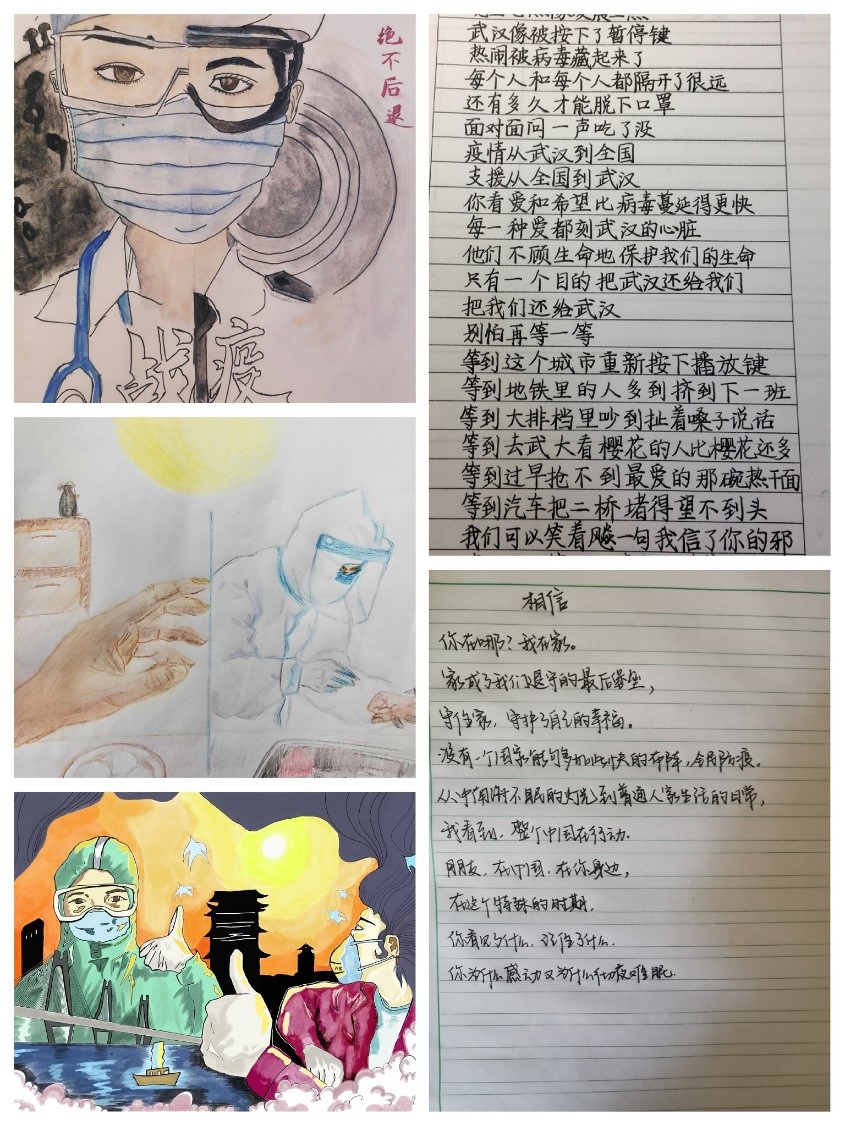 绝不后退
战疫
武汉像被按下了暂停键
热闹被病毒藏起来了
每个人和每个人都隔开了很远
还有多久才能脱下口罩
面对面问一声吃了没
疫情从武汉到全国
支援从全国到武汉
你看爱和希望比病毒蔓延得更快
每一种爱都刻武汉的心脏
他们不顾生命地保护我们的生命
只有一个目的把武汉还给我们
把我们还给武汉
别怕再等一等
等到这个城市重新按下播放键
等到地铁里的人多到挤到下一班
等到大排档里吵到扯着嗓子说话
等到去武大看樱花的人比樱花还多
等到过早抢不到最爱的那碗热干面
等到汽车把二桥堵得望不到头
我们可以笑着飚一句我信了你的邪
相信
你在哪?我在家。
家成了我们退守的最后堡垒,
守住家,守护了自己的幸福。
没有一个国家能够如此快的布阵,全民防疫。
从中南海不眠的灯光到普通人家生活的日常,
我看到,整个中国在行动.
朋友,在中国,在你身边,
在这个特殊的时期,
你看见了什么,记住了什么.
你为什么感动又为什么彻夜难眠.